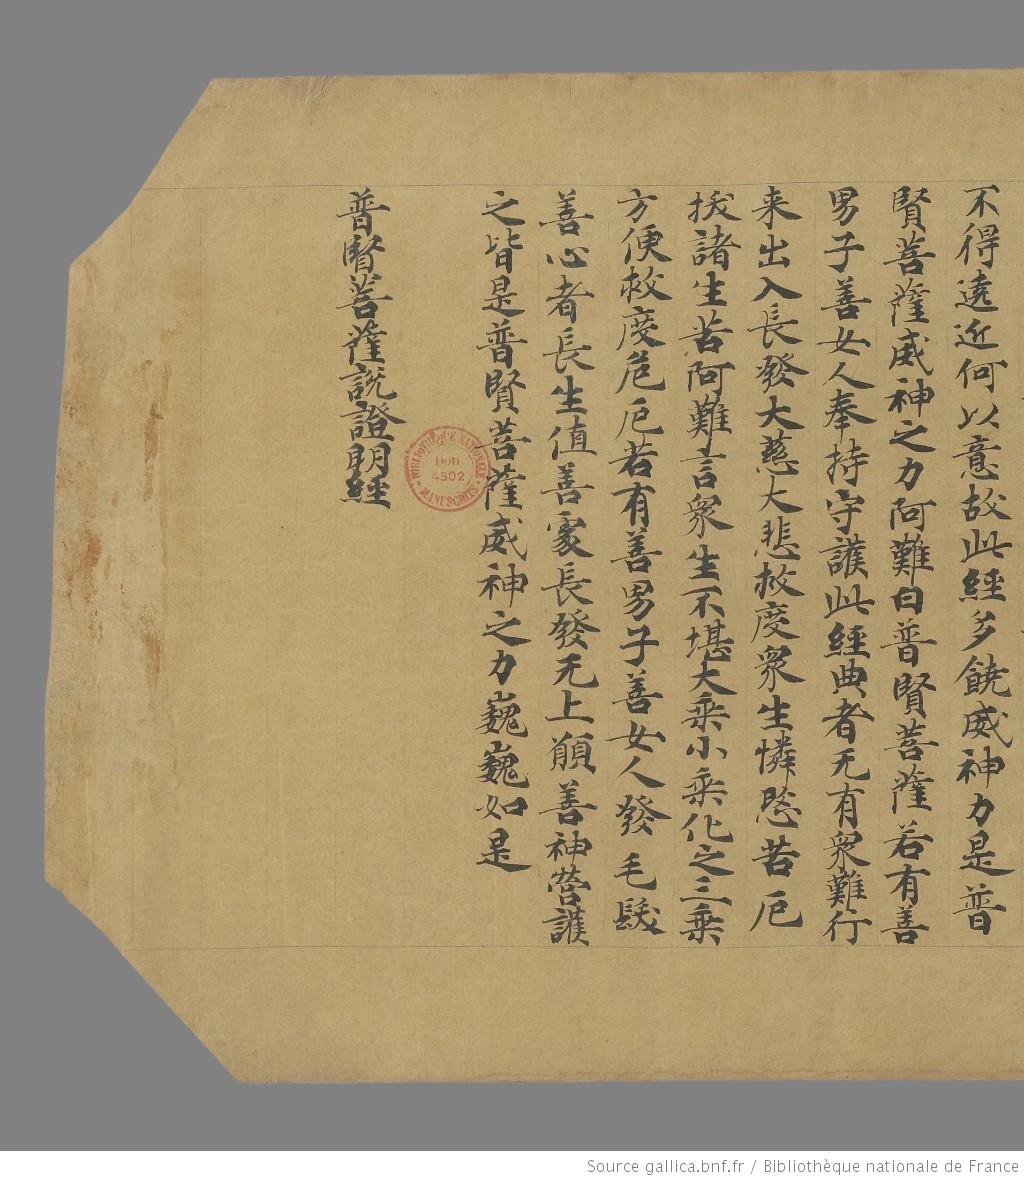 不得遠近何以意故此經多饒威神力是普
賢菩薩威神之力阿難白普賢菩薩若有善
男子善女人奉持守護此經典者无有衆難行
来出入長發大慈大悲救度衆生憐愍苦厄
拔諸生苦阿難言衆生不堪大乘小乘化之三乘
方便救度危厄若有善男子善女人發毛髮
善心者長生值善家長發无上願善神營護
之皆是普賢菩薩威神之力巍巍如是
普賢菩薩説證明經
BIBLIOTHÈQUE NATIONALE
Don
4502
MANUSCRITS
Source gallica.bnf.fr / Bibliothèque nationale de France